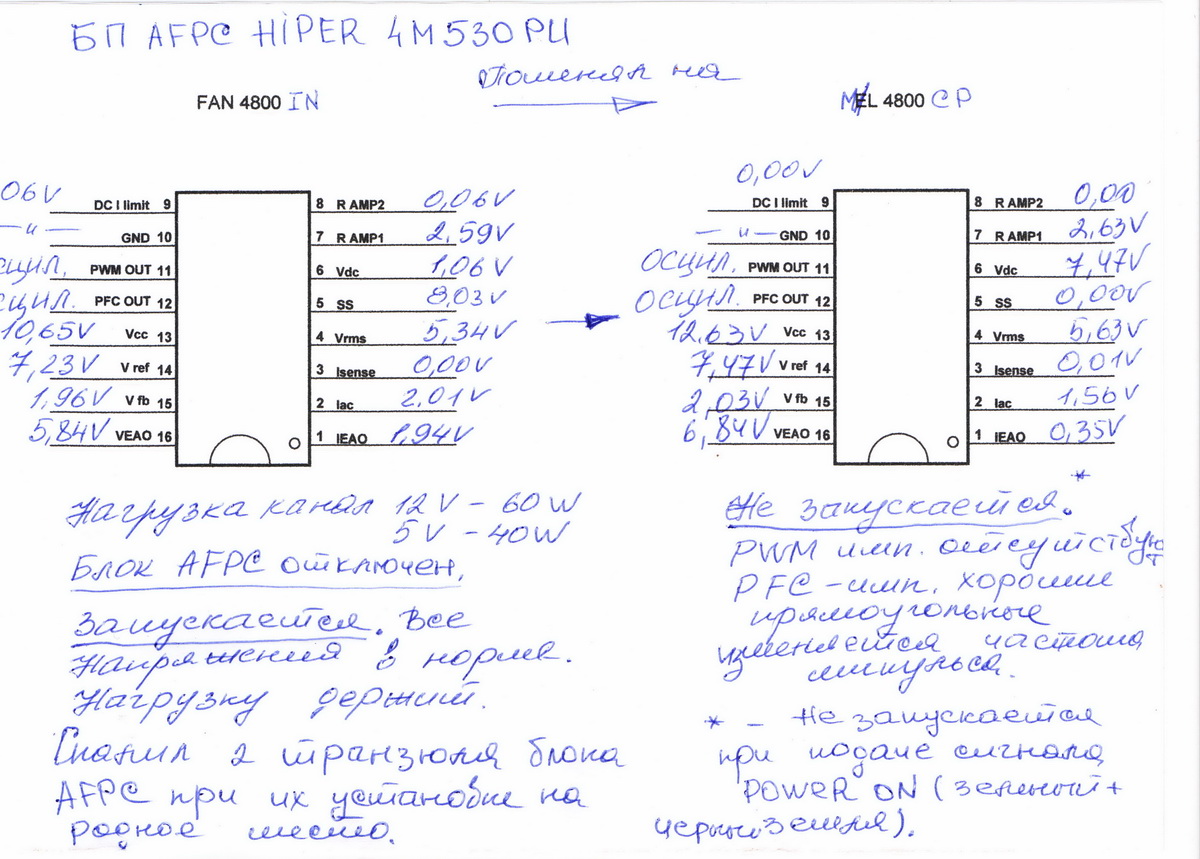 БП AFPC HIPER 4M530PU
Поменял на
FAN 4800 IN
ML 4800 CP
06V
DC I limit 9
8 R AMP2 0,06V
— и —
GND 10
7 R AMP1 2,59V
СЦИЛ. PWM OUT 11
6 Vdc 1,06V
СЦИЛ. PFC OUT 12
5 SS 8,03V
10,65V Vcc 13
4 Vrms 5,34V
7,23V V ref 14
3 Isense 0,00V
1,96V V fb 15
2 Iac 2,01V
5,84V VEAO 16
1 IEAO 1,94V
0,00V
DC I limit 9
8 R AMP2 0,00
— и — GND 10
7 R AMP1 2,63V
ОСЦИЛ. PWM OUT 11
6 Vdc 7,47V
ОСЦИЛ. PFC OUT 12
5 SS 0,00V
12,63V Vcc 13
4 Vrms 5,63V
7,47V V ref 14
3 Isense 0,01V
2,03V V fb 15
2 Iac 1,56V
6,84V VEAO 16
1 IEAO 0,35V
Нагрузка канал 12V – 60W
5V – 40W
Блок AFPC отключен,
Запускается. Все
Напряжения в норме.
Нагрузку держит.
Спалил 2 транзюля блока
AFPC при их установке на
родное место.
Не запускается.*
PWM имп. отсутствуют
PFC – имп. хорошие
прямоугольные
изменяется частота
импульса.
* – Не запускается
при подаче сигнала
POWER ON (зеленый +
черный земля).